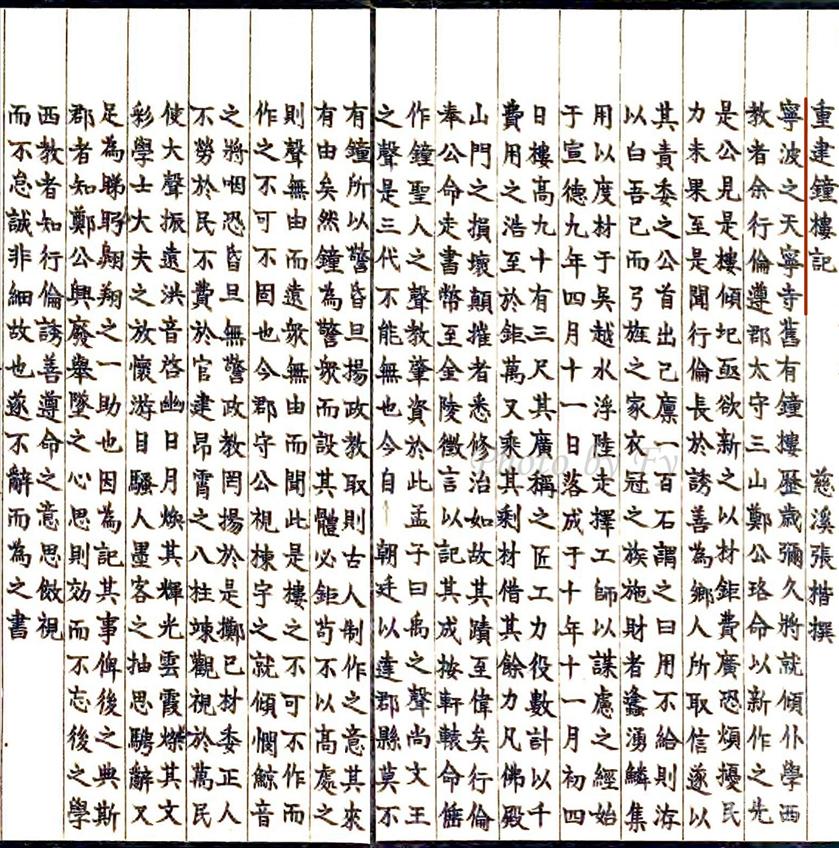 重建鐘樓記 慈溪張楷撰
寧波之天寧寺舊有鐘樓歷歲彌久將就傾仆學西
教者余行倫遵郡太守三山鄭公珞命以新作之先
是公見是樓傾圮亟欲新之以材鉅費廣恐煩擾民
力未果至是聞行倫長於誘善為鄉人所取信遂以
其責委之公首出己廪一百石謂之曰用不給則洊
以白吾已而弓旌之家衣冠之族施財者蠭湧鱗集
用以度材于吳越水浮陸走擇工師以謀慮之經始
于宣德九年四月十一日落成于十年十一月初四
日樓高九十有三尺其廣稱之匠工力役數計以千
費用之浩至於鉅萬又乘其剩材借其餘力凡佛殿
山門之損壞顛摧者悉修治如故其蹟至偉矣行倫
奉公命走書幣至金陵徵言以記其成按軒轅命倕
作鐘聖人之聲教肇資於此孟子曰禹之聲尚文王
之聲是三代不能無也今自 朝廷以達郡縣莫不
有鐘所以警昏旦揚政教取則古人制作之意其來
有由矣然鐘為警衆而設其體必鉅苟不以高處之
則聲無由而遠衆無由而聞此是樓之不可不作而
作之不可不固也今郡守公視棟宇之就傾憫鯨音
之將咽恐昏旦無警政教罔揚於是擲已材委正人
不勞於民不費於官建昂霄之八柱竦觀視於萬民
使大聲振遠洪音啓幽日月煥其輝光雲霞爍其文
彩學士大夫之放懷游目騷人墨客之抽思騁辭又
足為睇眄翱翔之一助也因為記其事俾後之典斯
郡者知鄭公興廢舉墜之心思則効而不忘後之學
西教者知行倫誘善遵命之意思倣視
而不怠誠非細故也遂不辭而為之書
Photo by Fy